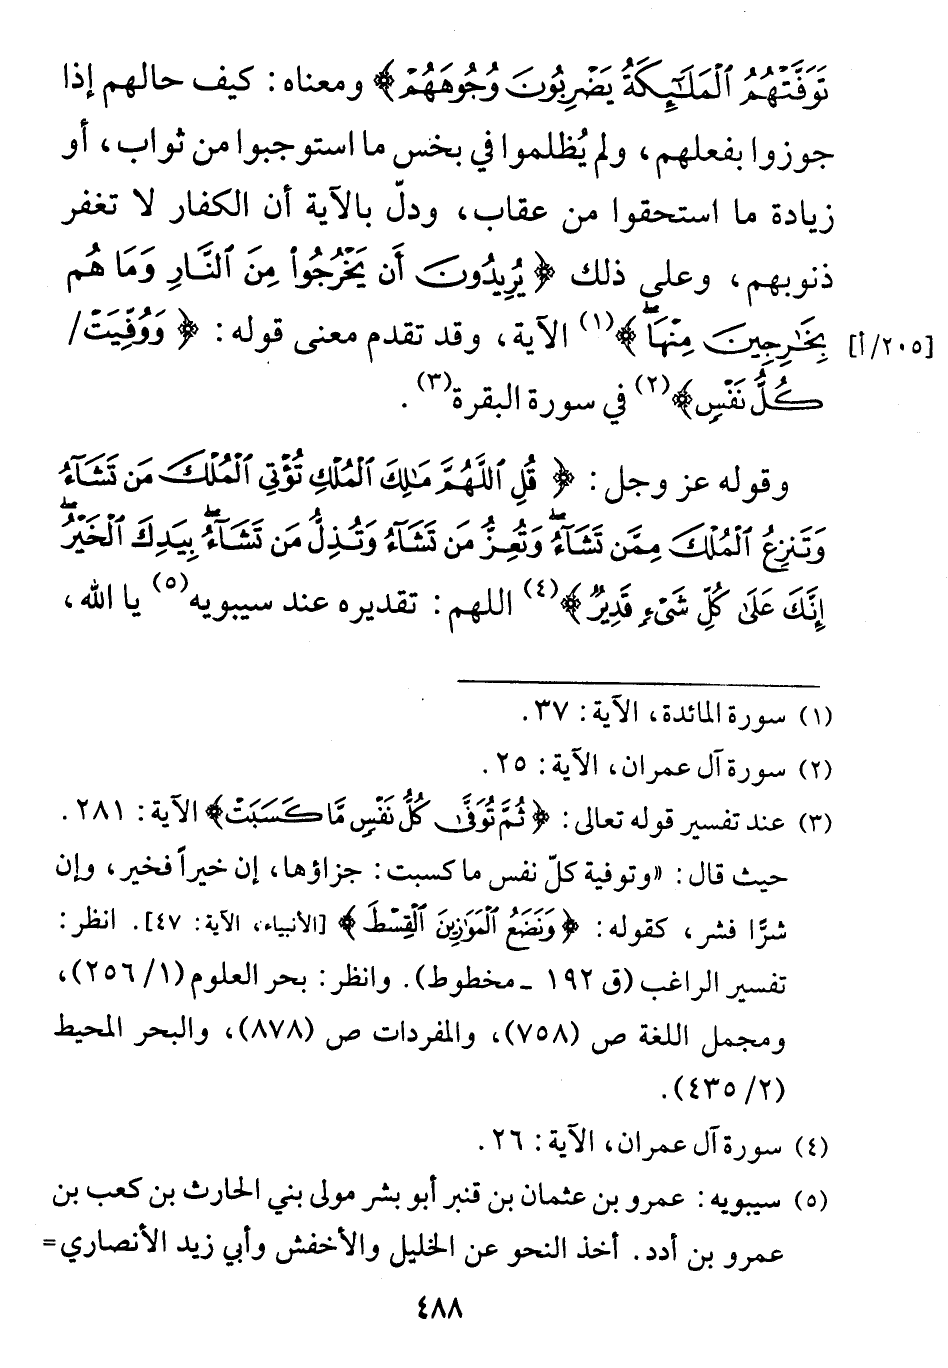 تَوَفَّتْهُمُ ٱلْمَلَٰٓئِكَةُ يَضْرِبُونَ وُجُوهَهُمْ﴾ ومعناه: كيف حالهم إذا
جوزوا بفعلهم، ولم يُظلموا في بخس ما استوجبوا من ثواب، أو
زيادة ما استحقوا من عقاب، ودلّ بالآية أن الكفار لا تغفر
ذنوبهم، وعلى ذلك ﴿يُرِيدُونَ أَن يَخْرُجُوا۟ مِنَ ٱلنَّارِ وَمَا هُم
بِخَٰرِجِينَ مِنْهَاۖ﴾(١) الآية، وقد تقدم معنى قوله: ﴿وَوُفِّيَتْ/ [٢٠٥/أ]
كُلُّ نَفْسٍ﴾(٢) في سورة البقرة(٣).
وقوله عز وجل: ﴿قُلِ ٱللَّهُمَّ مَٰلِكَ ٱلْمُلْكِ تُؤْتِى ٱلْمُلْكَ مَن تَشَآءُ
وَتَنزِعُ ٱلْمُلْكَ مِمَّن تَشَآءُۖ وَتُعِزُّ مَن تَشَآءُ وَتُذِلُّ مَن تَشَآءُۖ بِيَدِكَ ٱلْخَيْرُۖ
إِنَّكَ عَلَىٰ كُلِّ شَىْءٍ قَدِيرٌ﴾(٤) اللهم: تقديره عند سيبويه(٥) يا الله،
(١) سورة المائدة، الآية: ٣٧.
(٢) سورة آل عمران، الآية: ٢٥.
(٣) عند تفسير قوله تعالى: ﴿ثُمَّ تُوَفَّىٰ كُلُّ نَفْسٍ مَّا كَسَبَتْ﴾ الآية: ٢٨١.
حيث قال: «وتوفية كلّ نفس ما كسبت: جزاؤها، إن خيراً فخير، وإن
شرًّا فشر، كقوله: ﴿وَنَضَعُ ٱلْمَوَٰزِينَ ٱلْقِسْطَ﴾ [الأنبياء، الآية: ٤٧]. انظر:
تفسير الراغب (ق ١٩٢ ـ مخطوط). وانظر: بحر العلوم (١/ ٢٥٦)،
ومجمل اللغة ص (٧٥٨)، والمفردات ص (٨٧٨)، والبحر المحيط
(٢/ ٤٣٥).
(٤) سورة آل عمران، الآية: ٢٦.
(٥) سيبويه: عمرو بن عثمان بن قنبر أبو بشر مولى بني الحارث بن كعب بن
عمرو بن أدد. أخذ النحو عن الخليل والأخفش وأبي زيد الأنصاري=
٤٨٨